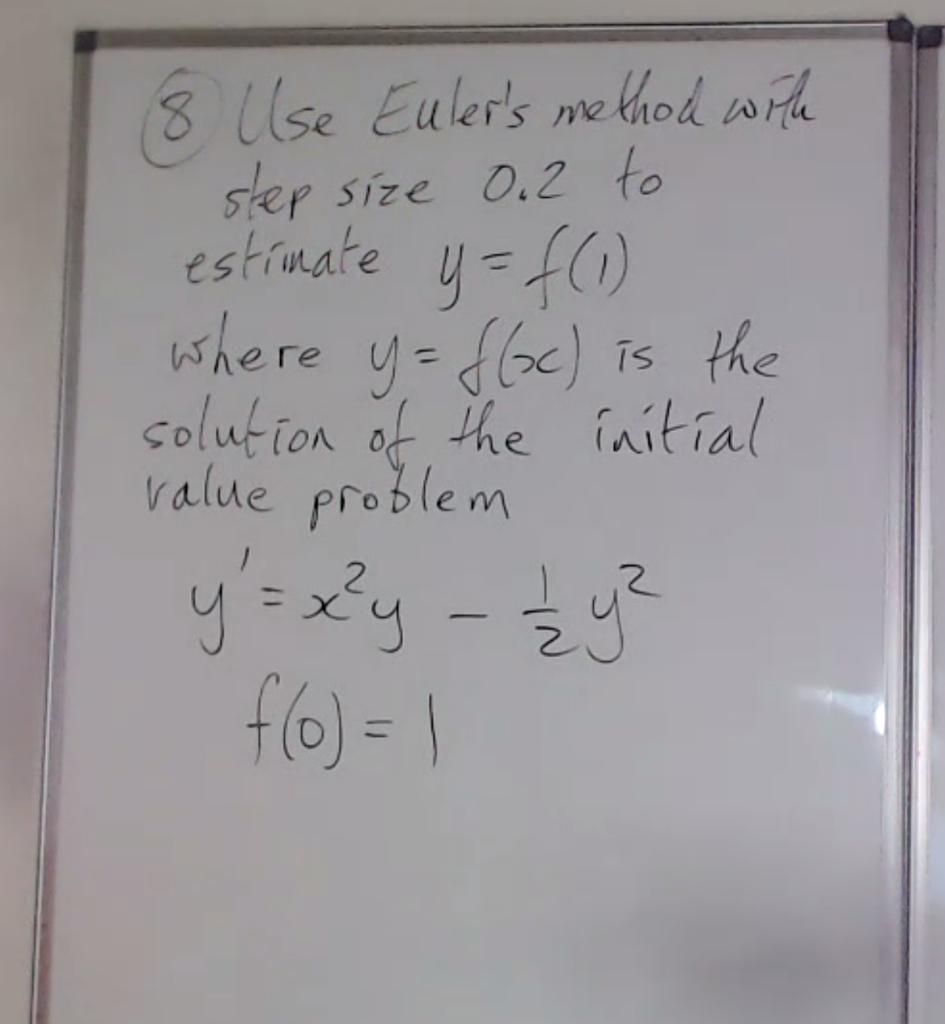 ⑧ Use Euler's method with
step size 0.2 to
estimate y = f(1)
where y = f(x) is the
solution of the initial
value problem
y' = x²y - ½y²
f(0) = 1